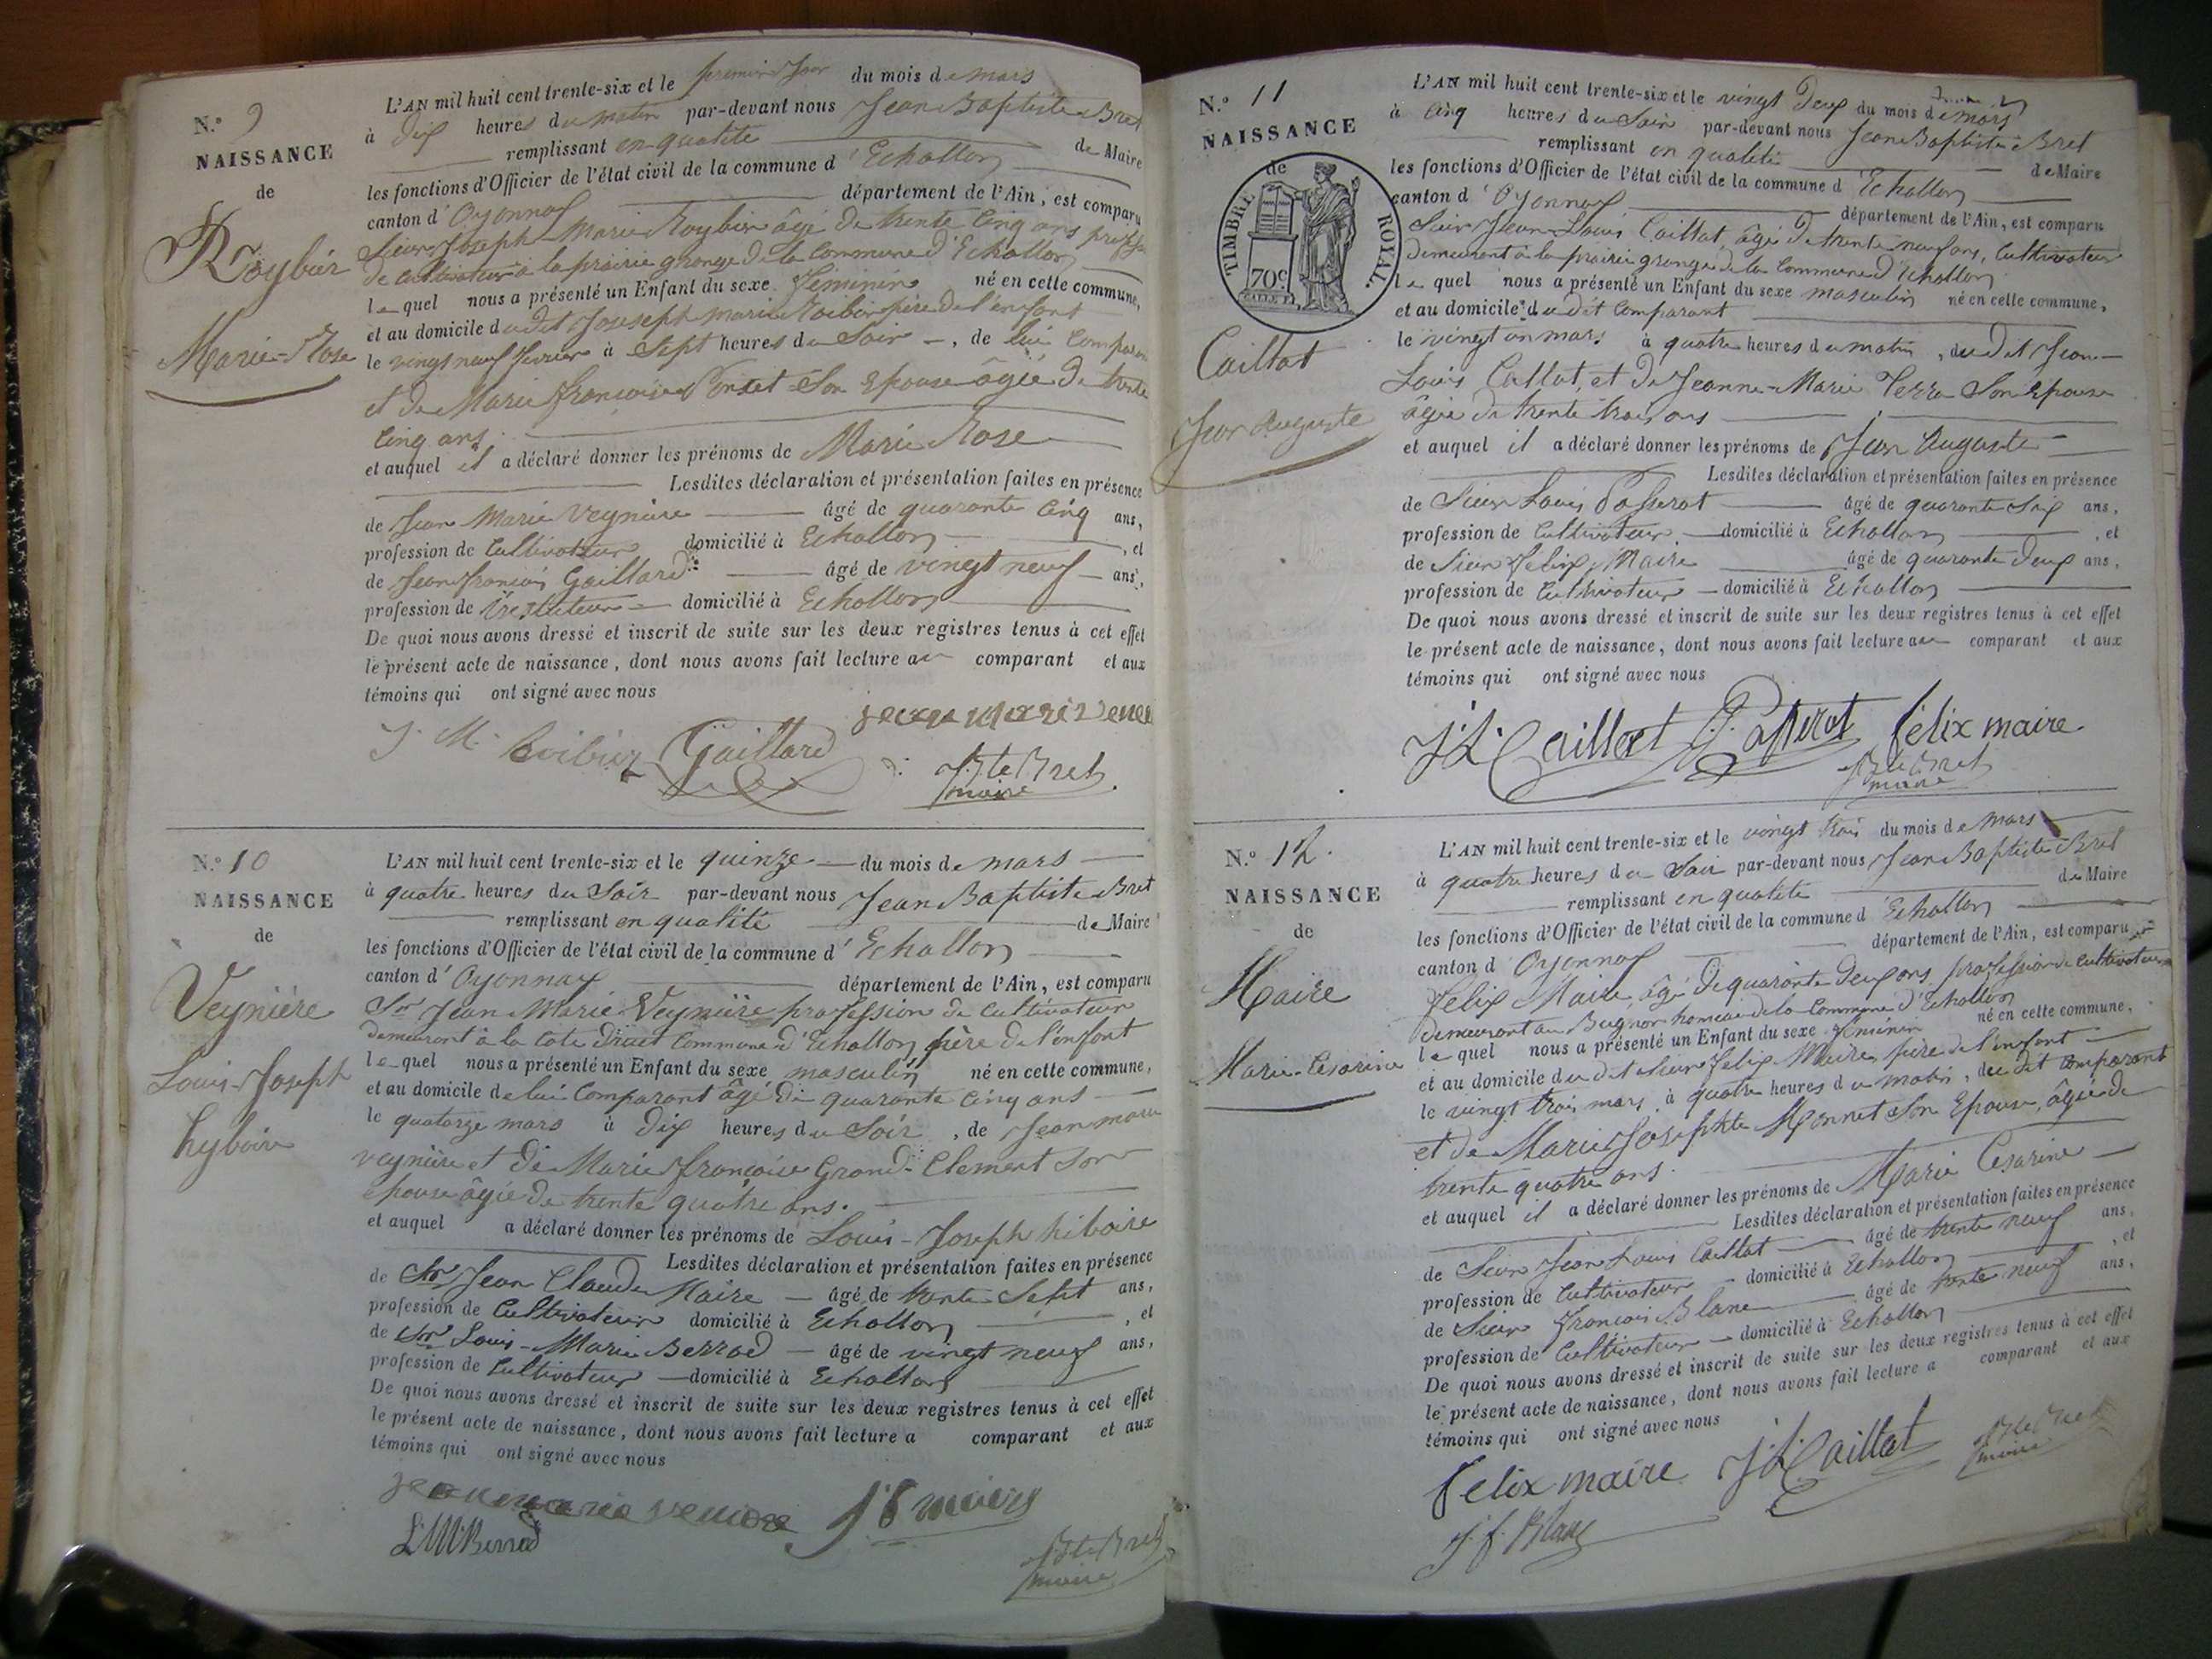 N.º 9
NAISSANCE
de
Roybier
Marie-Rose
L'AN mil huit cent trente-six et le premier Jour du mois de mars
à Dix heures du matin par-devant nous Jean Baptiste Bret
remplissant en qualité de Maire
les fonctions d'Officier de l'état civil de la commune d'Echallon
canton d'Oyonnax département de l'Ain, est comparu
Sieur Joseph Marie Roybier âgé de trente Cinq ans
de cultivateur à la prairie grange de la Commune d'Echallon
lequel nous a présenté un Enfant du sexe Féminin né en cette commune,
et au domicile du dit Joseseph marie Roibier père de l'enfant
le vingt neuf fevrier à Sept heures du Soir, de lui Comparant
et de Marie françoise Poncet Son Epouse âgée de trente
Cinq ans
et auquel il a déclaré donner les prénoms de Marie Rose
Lesdites déclaration et présentation faites en présence
de Jean Marie Veyniere âgé de quarante Cinq ans,
profession de Cultivateur domicilié à Echallon, et
de Jean françois Gaillard âgé de vingt neuf ans,
profession de Instituteur domicilié à Echallon
De quoi nous avons dressé et inscrit de suite sur les deux registres tenus à cet effet
le présent acte de naissance, dont nous avons fait lecture au comparant et aux
témoins qui ont signé avec nous
jean mari
J. M. Roibier Gaillard
J Bte Bret
maire
N.º 10
NAISSANCE
de
Veyniére
Louis-Joseph
hyboire
L'AN mil huit cent trente-six et le quinze du mois de mars
à quatre heures du Soir par-devant nous Jean Baptiste Bret
remplissant en qualité de Maire
les fonctions d'Officier de l'état civil de la commune d'Echallon
canton d'Oyonnax département de l'Ain, est comparu
Sr Jean Marie Veyniere profession de Cultivateur
demeurant à la Cote Commune d'Echallon père de l'enfant
lequel nous a présenté un Enfant du sexe masculin né en cette commune,
et au domicile de lui Comparant âgé de quarante Cinq ans
le quatorze mars à Dix heures du Soir, de Jean marie
veyniere et de Marie françoise Grand-Clement son
épouse âgée de trente quatre ans.
et auquel a déclaré donner les prénoms de Louis-Joseph hiboire
Lesdites déclaration et présentation faites en présence
de Sr Jean Claude Maire âgé de trente Sept ans,
profession de Cultivateur domicilié à Echallon, et
de Sr Louis-Marie Berrod âgé de vingt neuf ans,
profession de Cultivateur domicilié à Echallon
De quoi nous avons dressé et inscrit de suite sur les deux registres tenus à cet effet
le présent acte de naissance, dont nous avons fait lecture a comparant et aux
témoins qui ont signé avec nous
jean marie
L M Berrod
J Bte Bret
maire
N.º 11
NAISSANCE
de
TIMBRE ROYAL.
70c
Caillat
Jean Auguste
L'AN mil huit cent trente-six et le vingt Deux du mois de mars
à Cinq heures du Soir par-devant nous Jean Baptiste Bret
remplissant en qualité de Maire
les fonctions d'Officier de l'état civil de la commune d'Echallon
canton d'Oyonnax département de l'Ain, est comparu
Sieur Jean Louis Caillat, âgé de trente neuf ans, Cultivateur
demeurant à la prairie grange de la Commune d'Echallon
lequel nous a présenté un Enfant du sexe masculin né en cette commune,
et au domicile du dit Comparant
le vingt un mars à quatre heures du matin, du dit Jean-
Louis Callat, et de Jeanne-Marie Verra Son Epouse
âgée de trente trois ans
et auquel il a déclaré donner les prénoms de Jean Auguste
Lesdites déclaration et présentation faites en présence
de Sieur Louis Passerat âgé de quarante Six ans,
profession de Cultivateur domicilié à Echallon, et
de Sieur Felix Maire âgé de quarante Deux ans,
profession de Cultivateur domicilié à Echallon
De quoi nous avons dressé et inscrit de suite sur les deux registres tenus à cet effet
le présent acte de naissance, dont nous avons fait lecture au comparant et aux
témoins qui ont signé avec nous
J L Caillat Passerat félix maire
J Bte Bret
maire
N.º 12
NAISSANCE
de
Maire
Marie-Césarine
L'AN mil huit cent trente-six et le vingt trois du mois de mars
à quatre heures du Soir par-devant nous Jean Baptiste Bret
remplissant en qualité de Maire
les fonctions d'Officier de l'état civil de la commune d'Echallon
canton d'Oyonnax département de l'Ain, est comparu
Felix Maire, âgé de quarante Deux ans, profession de Cultivateur
demeurant au de la Commune d'Echallon
lequel nous a présenté un Enfant du sexe féminin né en cette commune,
et au domicile du dit Sieur Felix Maire, père de l'enfant
le vingt trois mars à quatre heures du matin, du dit Comparant
et de Marie Josephte Monnet Son Epouse, âgée de
trente quatre ans.
et auquel il a déclaré donner les prénoms de Marie Césarine
Lesdites déclaration et présentation faites en présence
de Sieur Jean Louis Caillat âgé de trente neuf ans,
profession de Cultivateur domicilié à Echallon, et
de Sieur François Blanc âgé de trente neuf ans,
profession de Cultivateur domicilié à Echallon
De quoi nous avons dressé et inscrit de suite sur les deux registres tenus à cet effet
le présent acte de naissance, dont nous avons fait lecture a comparant et aux
témoins qui ont signé avec nous
felix maire J L Caillat
J Bte Bret
maire
J. f. Blanc